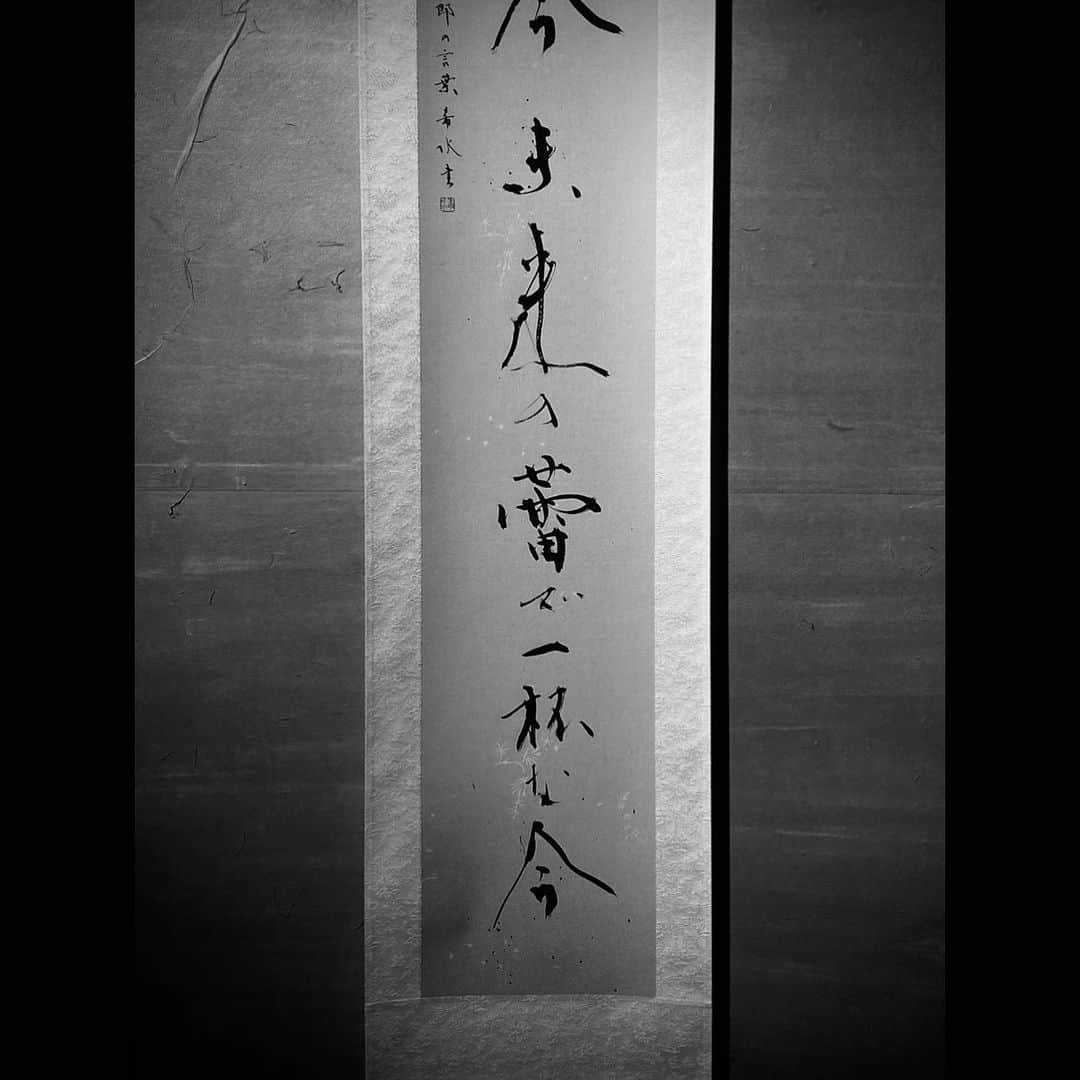 今未来の蕾で一杯な今
郎の言葉 春水書